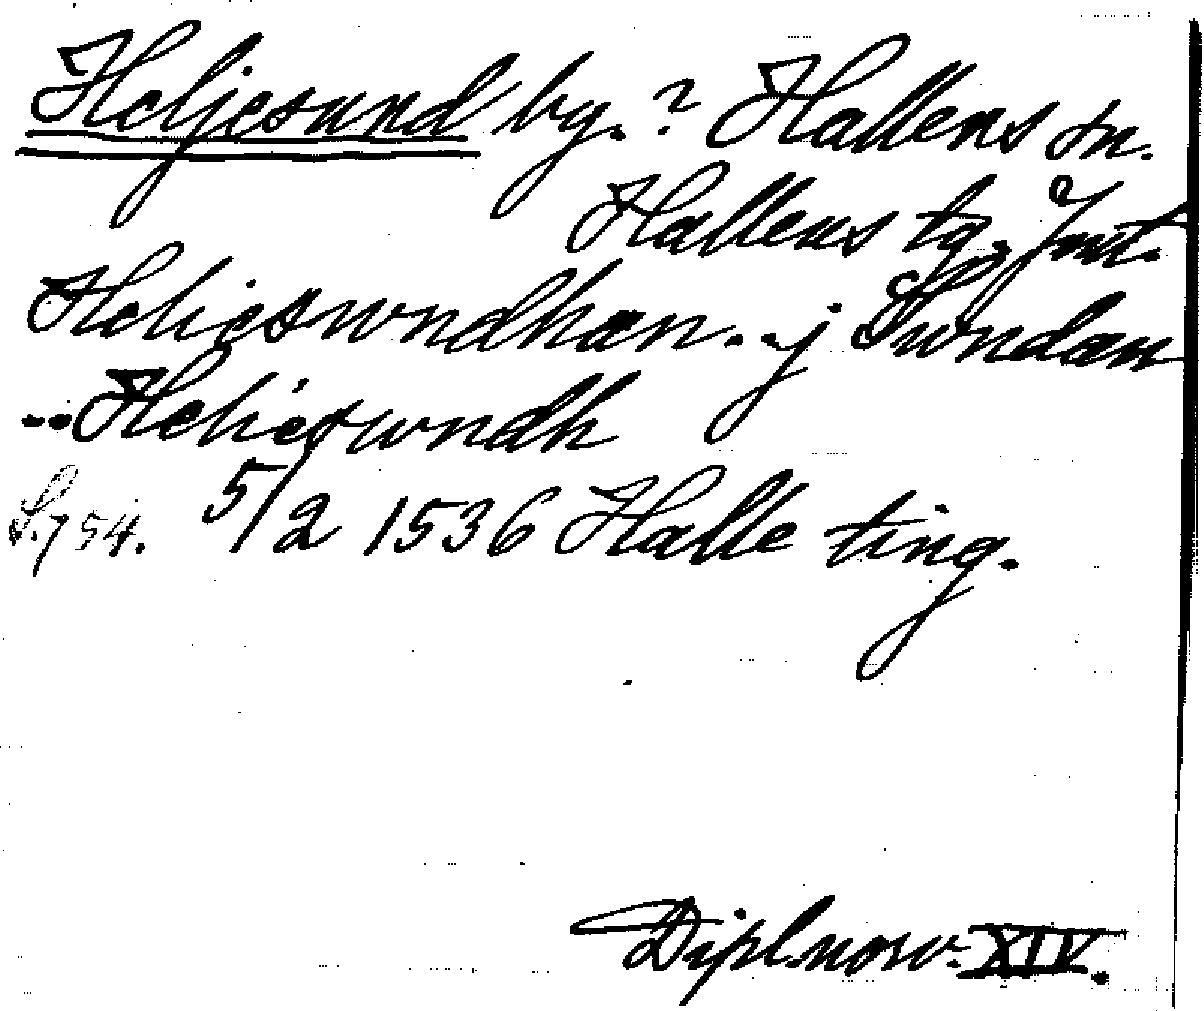 Heljesund by.? Hallens sn.
Hallens tg. Jmt.
Helieswndhan... j Swndan
...Helieswndh
S. 754. 5/2 1536 Halle ting.
Dipl. norv. XIV.